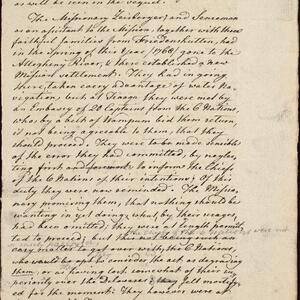 as will be seen in the sequel.
The Missionary Zeisberger, and Senseman
as an assistant to the Mission, together with three
faithful families from Friedenshutten, had
in the Spring of this Year 1768 gone to the
Allegheny River, & there established a new
Mission settlement. They had in going
there, taken every advantage of water Na-
vigation: but at Tioga they were met by
an Embassy of 20 Captains from the 6 Nations
who by a belt of Wampum bid them return,
it not being agreeable to them, that they
should proceed. They were to be made sensible
of the error they had committed, by neglec-
ting first to inform the Chiefs
of the 6 Nations of their intention; & of this
duty they were now reminded. The Missio-
nary promising them, that nothing should be
wanting in yet doing, what, by their usages,
had been omitted; they were at length permit-
ted to proceed; but this
matter to get over with the 6 Nations,
who would be apt to consider the act as degrading
them, or as having lost somewhat of their im-
periority over the Delawares, they felt mortifi-
ed for the moment. They however were at